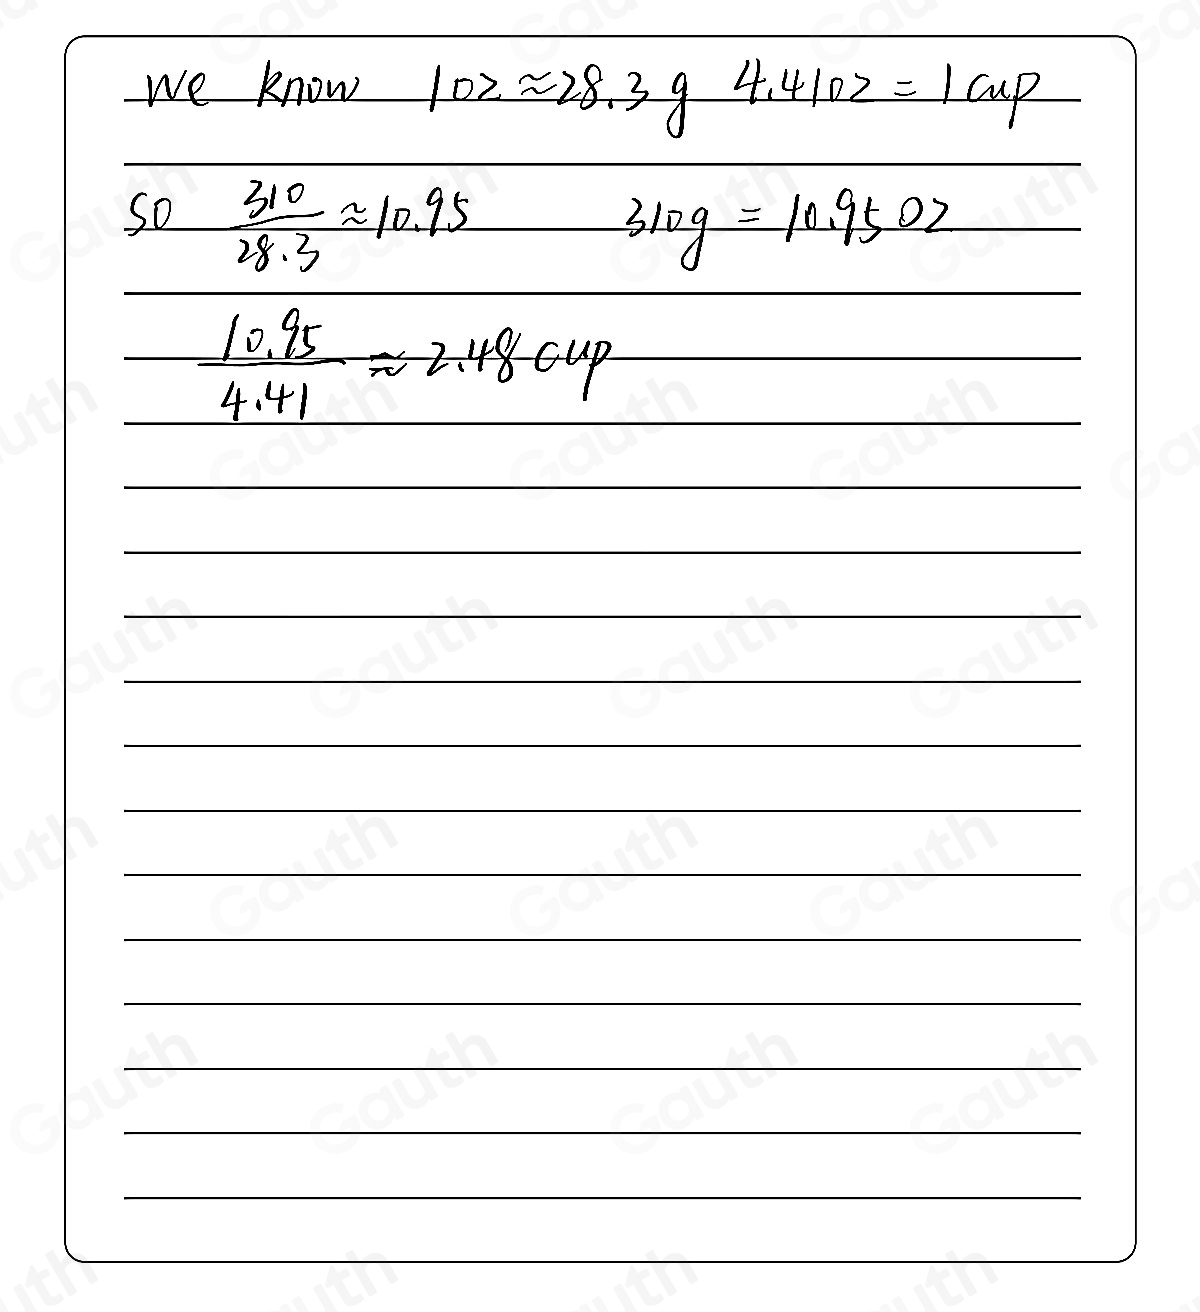 We know 1oz ≈28.3g 4.41oz = 1cup
So 310/28.3 ≈10.95 310g = 10.95oz
10.95/4.41 ≈ 2.48cup
Gauth